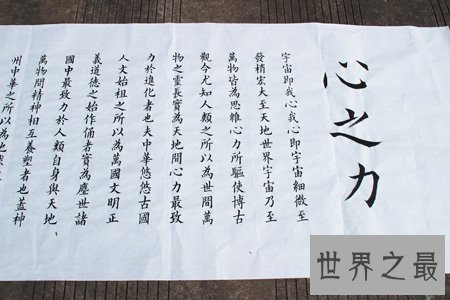 心之力
宇宙即我心我心即宇宙細微至
發梢宏大至天地世界宇宙乃至
萬物皆為思維心力所驅使博古
觀今尤知人類之所以為世間萬
物之靈長實為天地間心力最致
力於進化者也夫中華悠悠古國
人文始祖之所以為萬國文明正
義道德之始作俑者實為塵世諸
國中最致力於人類自身與天地
萬物間精神相互養塑者也蓋神
州中華之所以為
世界之最